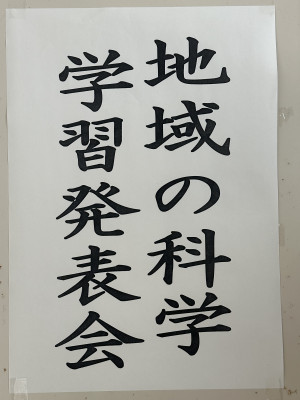 地域の科学
学習発表会